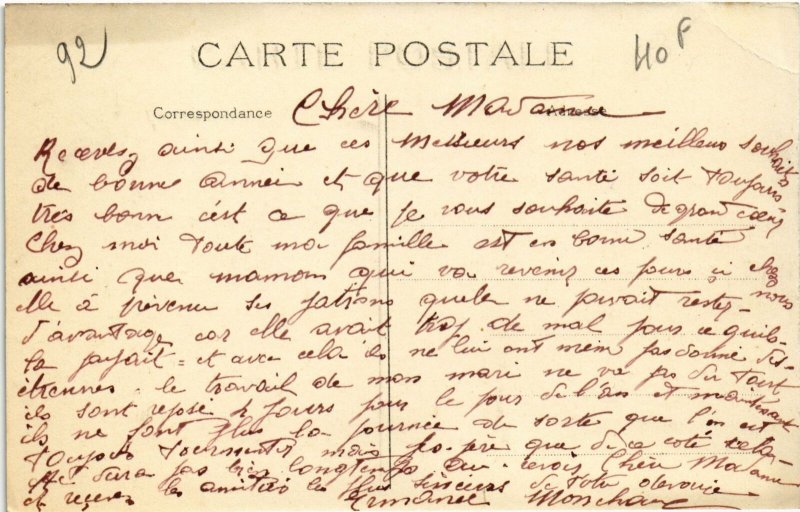 92
CARTE POSTALE
40F
Correspondance Adresse
Chère Madame
Recevez ainsi que ces Messieurs nos meilleurs souhaits
de bonne année et que votre santé soit toujours
très bonn c'ést ce que je vous souhaite de grand cœur
Chez moi toute ma famille est en bonne santé
ainsi que maman qui va revenir ces jours ici chez nous
elle à prévenu ses patrons quelle ne pouvait rester
d'avantage car elle avait trop de mal pour ce quils
la payait et avec cela ils ne lui ont mêm pas donné d'es
étrennes le travail de mon mari ne va pas du tout
ils sont reposé 4 jours pour le jour de l'an et maintenant
ils ne font plus la journée de sorte que l'on est
toujours tourmenter mais j'espère que de ce coté cela
ne dura pas bien longtemps au revoir Chère Madame
et recevez les amitiés les plus sincères de votre dévouée
Ermance